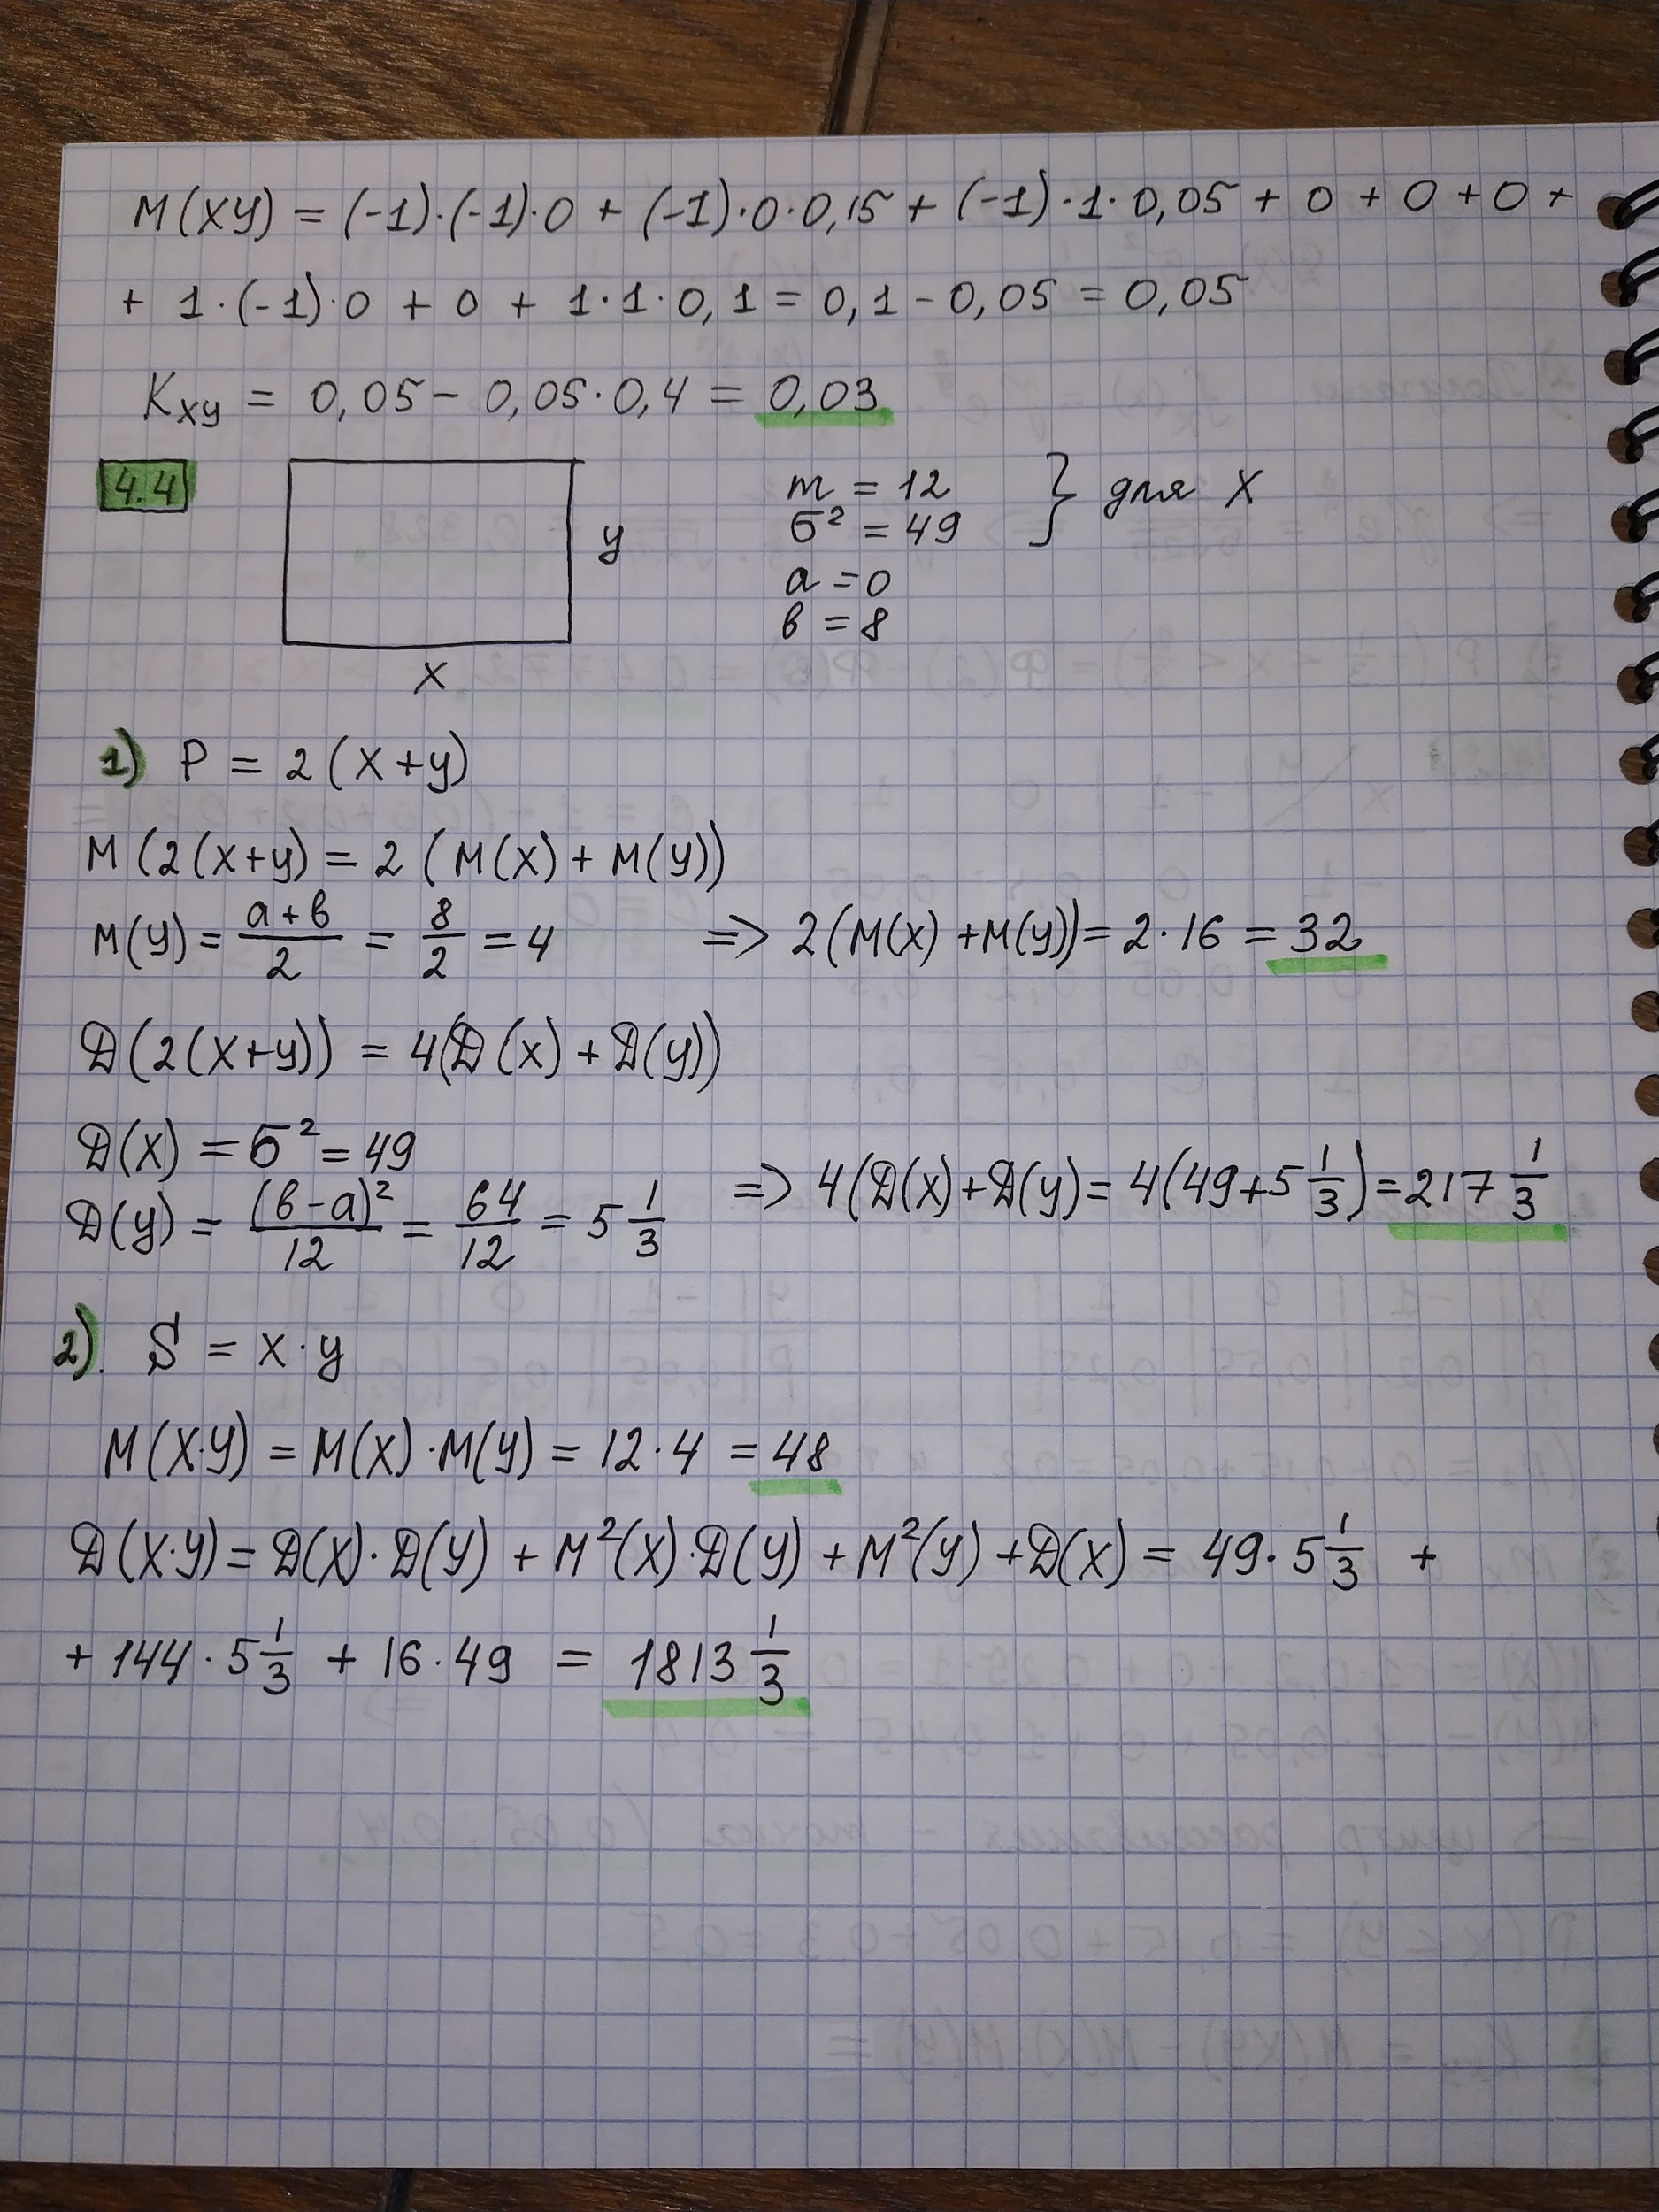 M(XY) = (-1)·(-1)·0 + (-1)·0·0,15 + (-1)·1·0,05 + 0 + 0 + 0 +
+ 1·(-1)·0 + 0 + 1·1·0,1 = 0,1 - 0,05 = 0,05
Kxy = 0,05 - 0,05·0,4 = 0,03
4.4
y
x
m = 12
σ² = 49
} для X
a = 0
b = 8
1) P = 2(x+y)
M(2(x+y) = 2(M(x) + M(y))
M(y) = (a+b)/2 = 8/2 = 4 => 2(M(x) + M(y)) = 2·16 = 32
D(2(x+y)) = 4(D(x) + D(y))
D(x) = σ² = 49
D(y) = (b-a)²/12 = 64/12 = 5 1/3 => 4(D(x)+D(y) = 4(49+5 1/3) = 217 1/3
2). S = x·y
M(X·Y) = M(x)·M(y) = 12·4 = 48
D(X·Y) = D(X)·D(Y) + M²(X)·D(Y) + M²(Y) + D(X) = 49·5 1/3 +
+ 144·5 1/3 + 16·49 = 1813 1/3